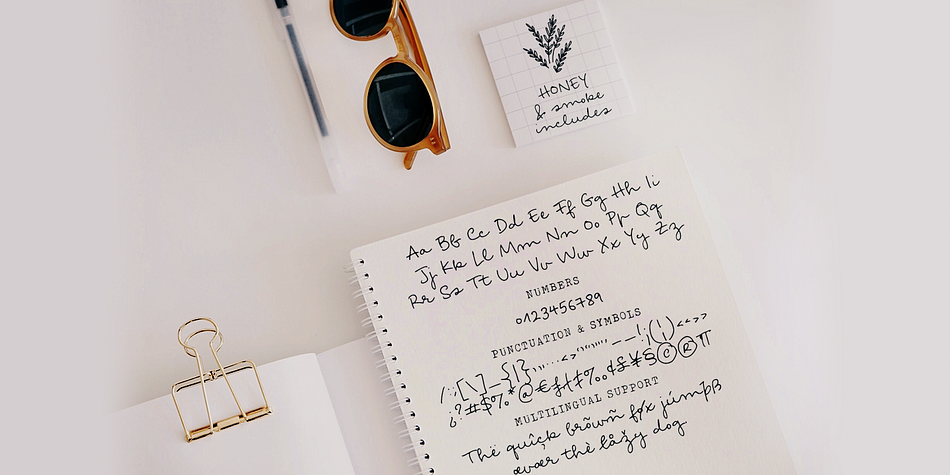 HONEY
& smoke
includes
Aa Bb Cc Dd Ee Ff Gg Hh Ii
Jj Kk Ll Mm Nn Oo Pp Qq
Rr Ss Tt Uu Vv Ww Xx Yy Zz
NUMBERS
0123456789
PUNCTUATION & SYMBOLS
MULTILINGUAL SUPPORT
Thë quîçk brõwñ fox júmpß
dog